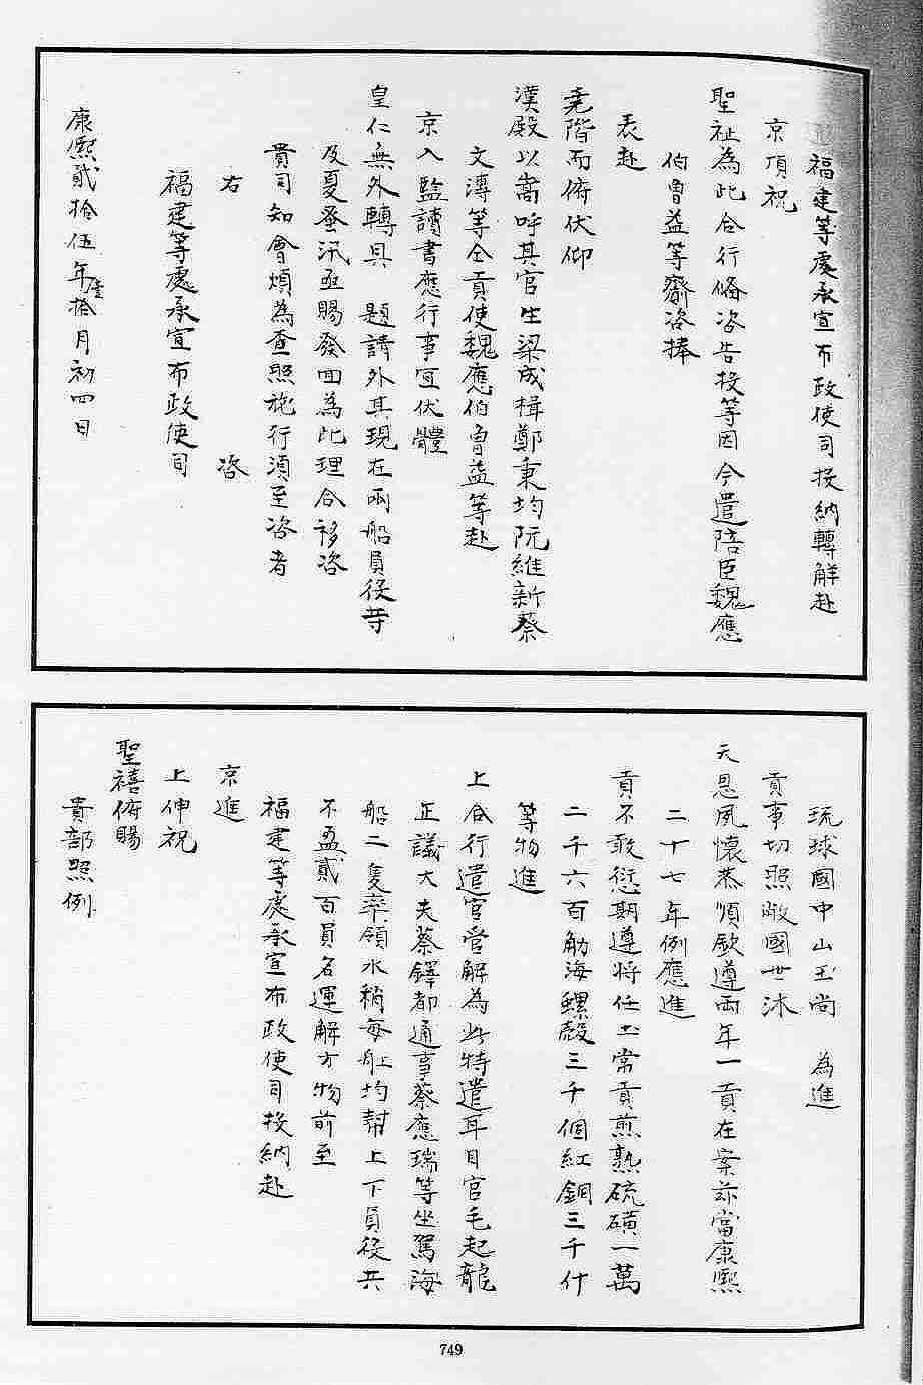 福建等處承宣布政使司投納轉解赴
京頂祝
聖祉為此合行俻咨告投等因今遣陪臣魏應
伯曾益等齎咨捧
表赴
堯階而俯伏仰
漢殿以嵩呼其官生梁成楫鄭秉均阮維新蔡
文溥等仝貢使魏應伯曾益等赴
京入監讀書應行事宜伏體
皇仁無外轉具題請外其現在兩船員役等
及夏蚤汛亟賜發回為此理合移咨
貴司知會煩為查照施行須至咨者
右咨
福建等處承宣布政使司
康熙貳拾伍年拾壹月初四日
琉球國中山王尚為進
貢事切照敝國世沐
天恩夙懷恭順欽遵兩年一貢在案茲當康熙
二十七年例應進
貢不敢愆期遵將任土常貢煎熟硫磺一萬
二千六百觔海螺殼三千個紅銅三千什
等物進
上合行遣官管解為此特遣耳目官毛起龍
正議大夫蔡鐸都通事蔡應瑞等坐駕海
船二隻率領水稍每舡均幫上下員役共
不盈貳百員名運解方物前至
福建等處承宣布政使司投納赴
京進
上伸祝
聖禧俯賜
貴部照例
749